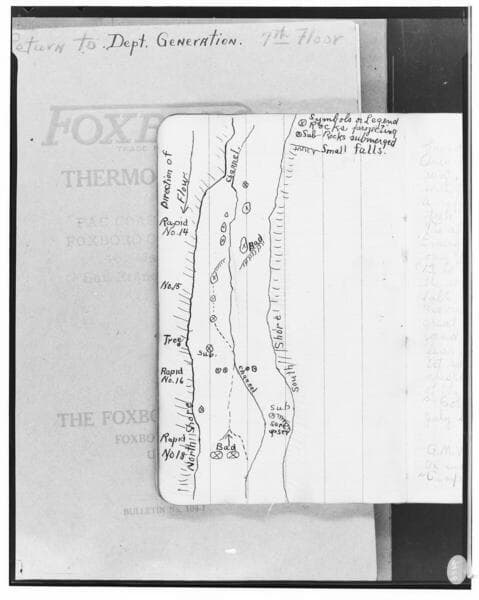 Return to Dept. Generation. 7th Floor
FOXBORO
TRADE
THERMO
THE FOXBO
FOXBO
BULLETIN No. 104-1
Symbols or Legend
Rocks projecting
Sub-Rocks submerged
Small falls.
Direction of
Flour
Channel
Rapid
No. 14
Bad
No. 15
Tree
Sub.
Rapid
No. 16
channel
South Shore
North Shore
Sub
Rapid
No 18
Bad